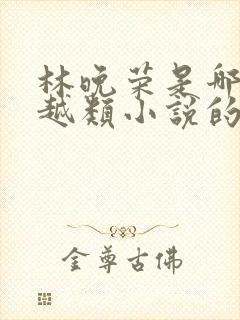 林晚荣是哪
越类小说的
金尊古佛